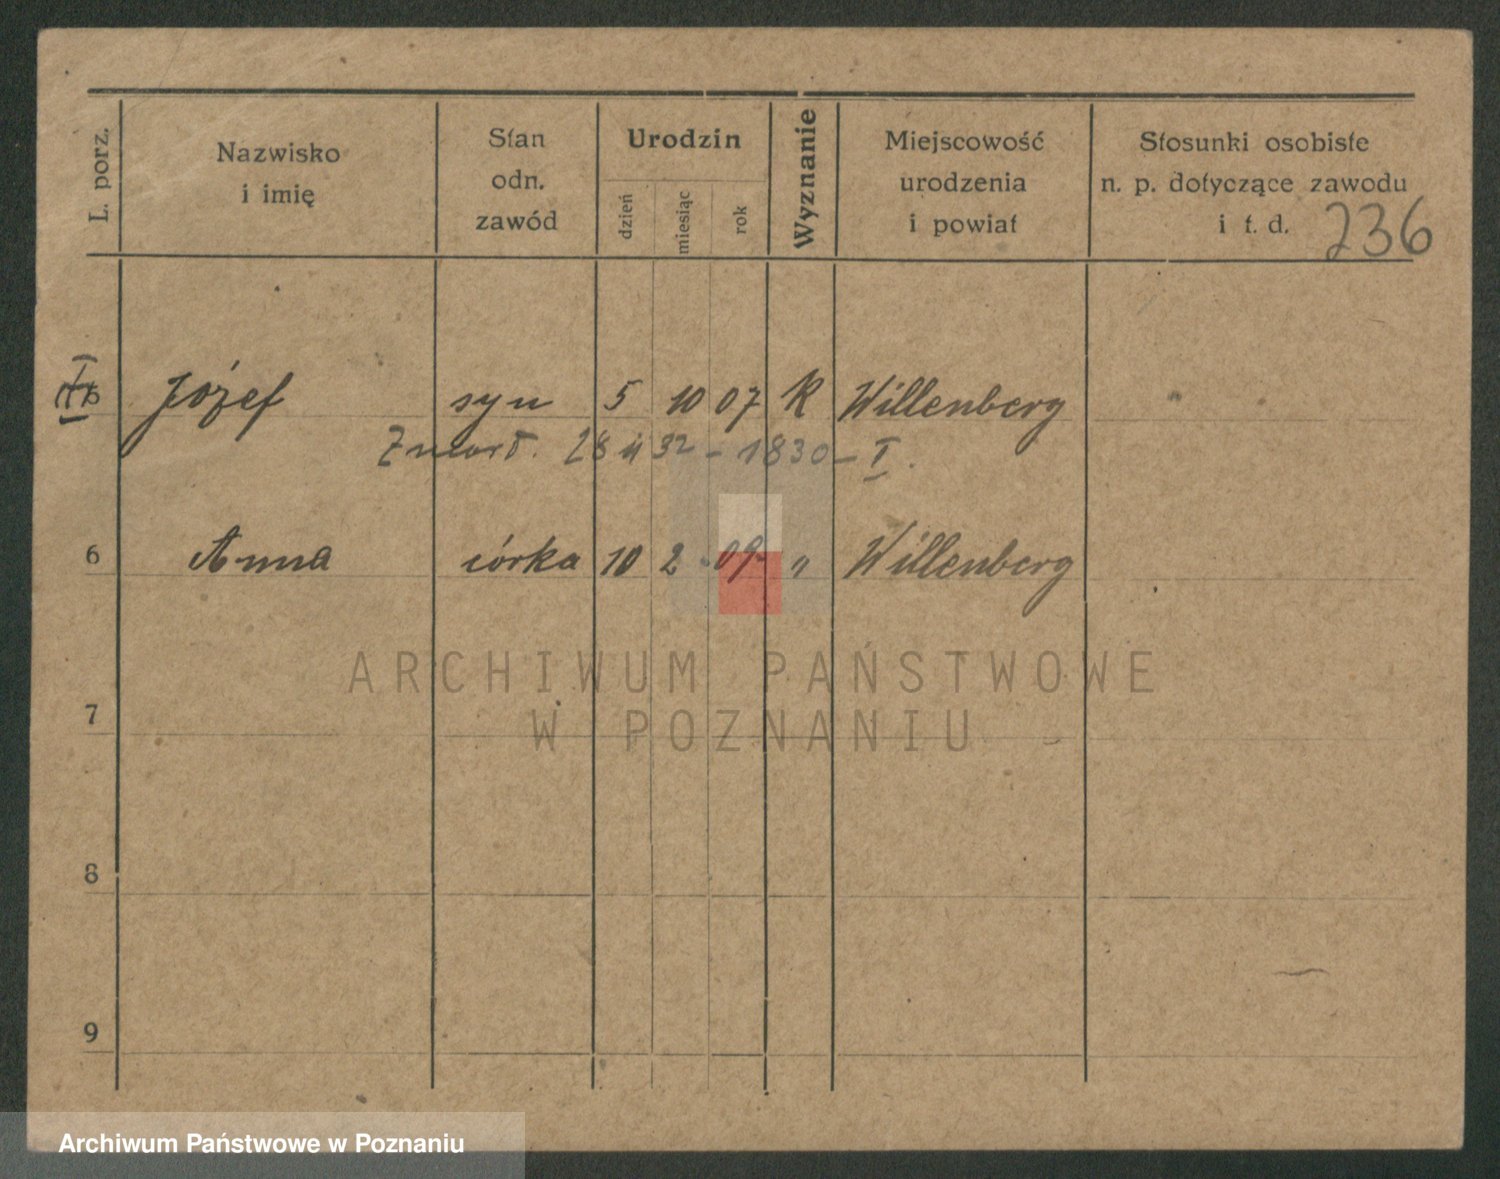 L. porz.
Nazwisko
i imię
Stan
odn.
zawód
Urodzin
dzień
miesiąc
rok
Wyznanie
Miejscowość
urodzenia
i powiat
Stosunki osobiste
n. p. dotyczące zawodu
i t. d.
236
5 Józef syn 5 10 07 K Willenberg
28 32 - 1830 - I.
6 Anna córka 10 2 09 " Willenberg
ARCHIWUM PAŃSTWOWE
W POZNANIU
7
8
9
Archiwum Państwowe w Poznaniu